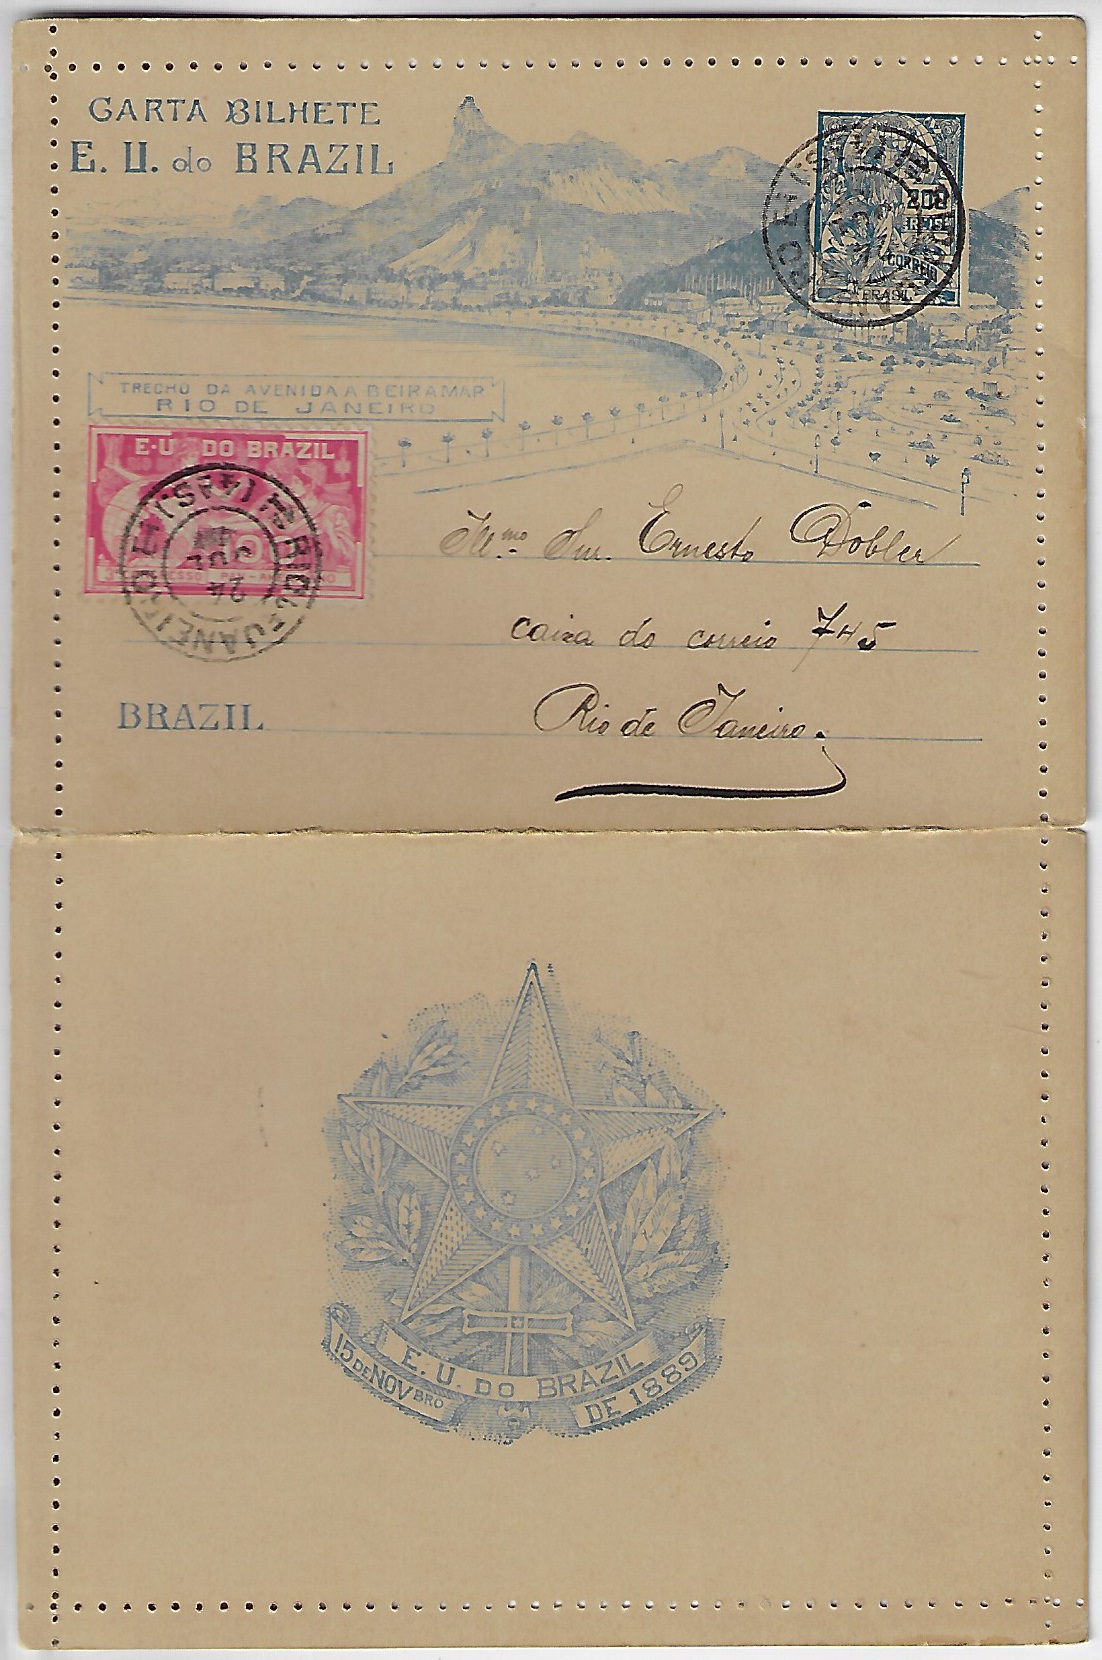 CARTA BILHETE
E. U. do BRAZIL
200
REIS
CORREIO
BRASIL
TRECHO DA AVENIDA A BEIRA MAR
RIO DE JANEIRO
E·U DO BRAZIL
RIO DE JANEIRO
24
JUL
Illmo Snr. Ernesto Dobler
caixa do correio 745
Rio de Janeiro.
BRAZIL
E. U. DO BRAZIL
15 DE NOVBRO DE 1889